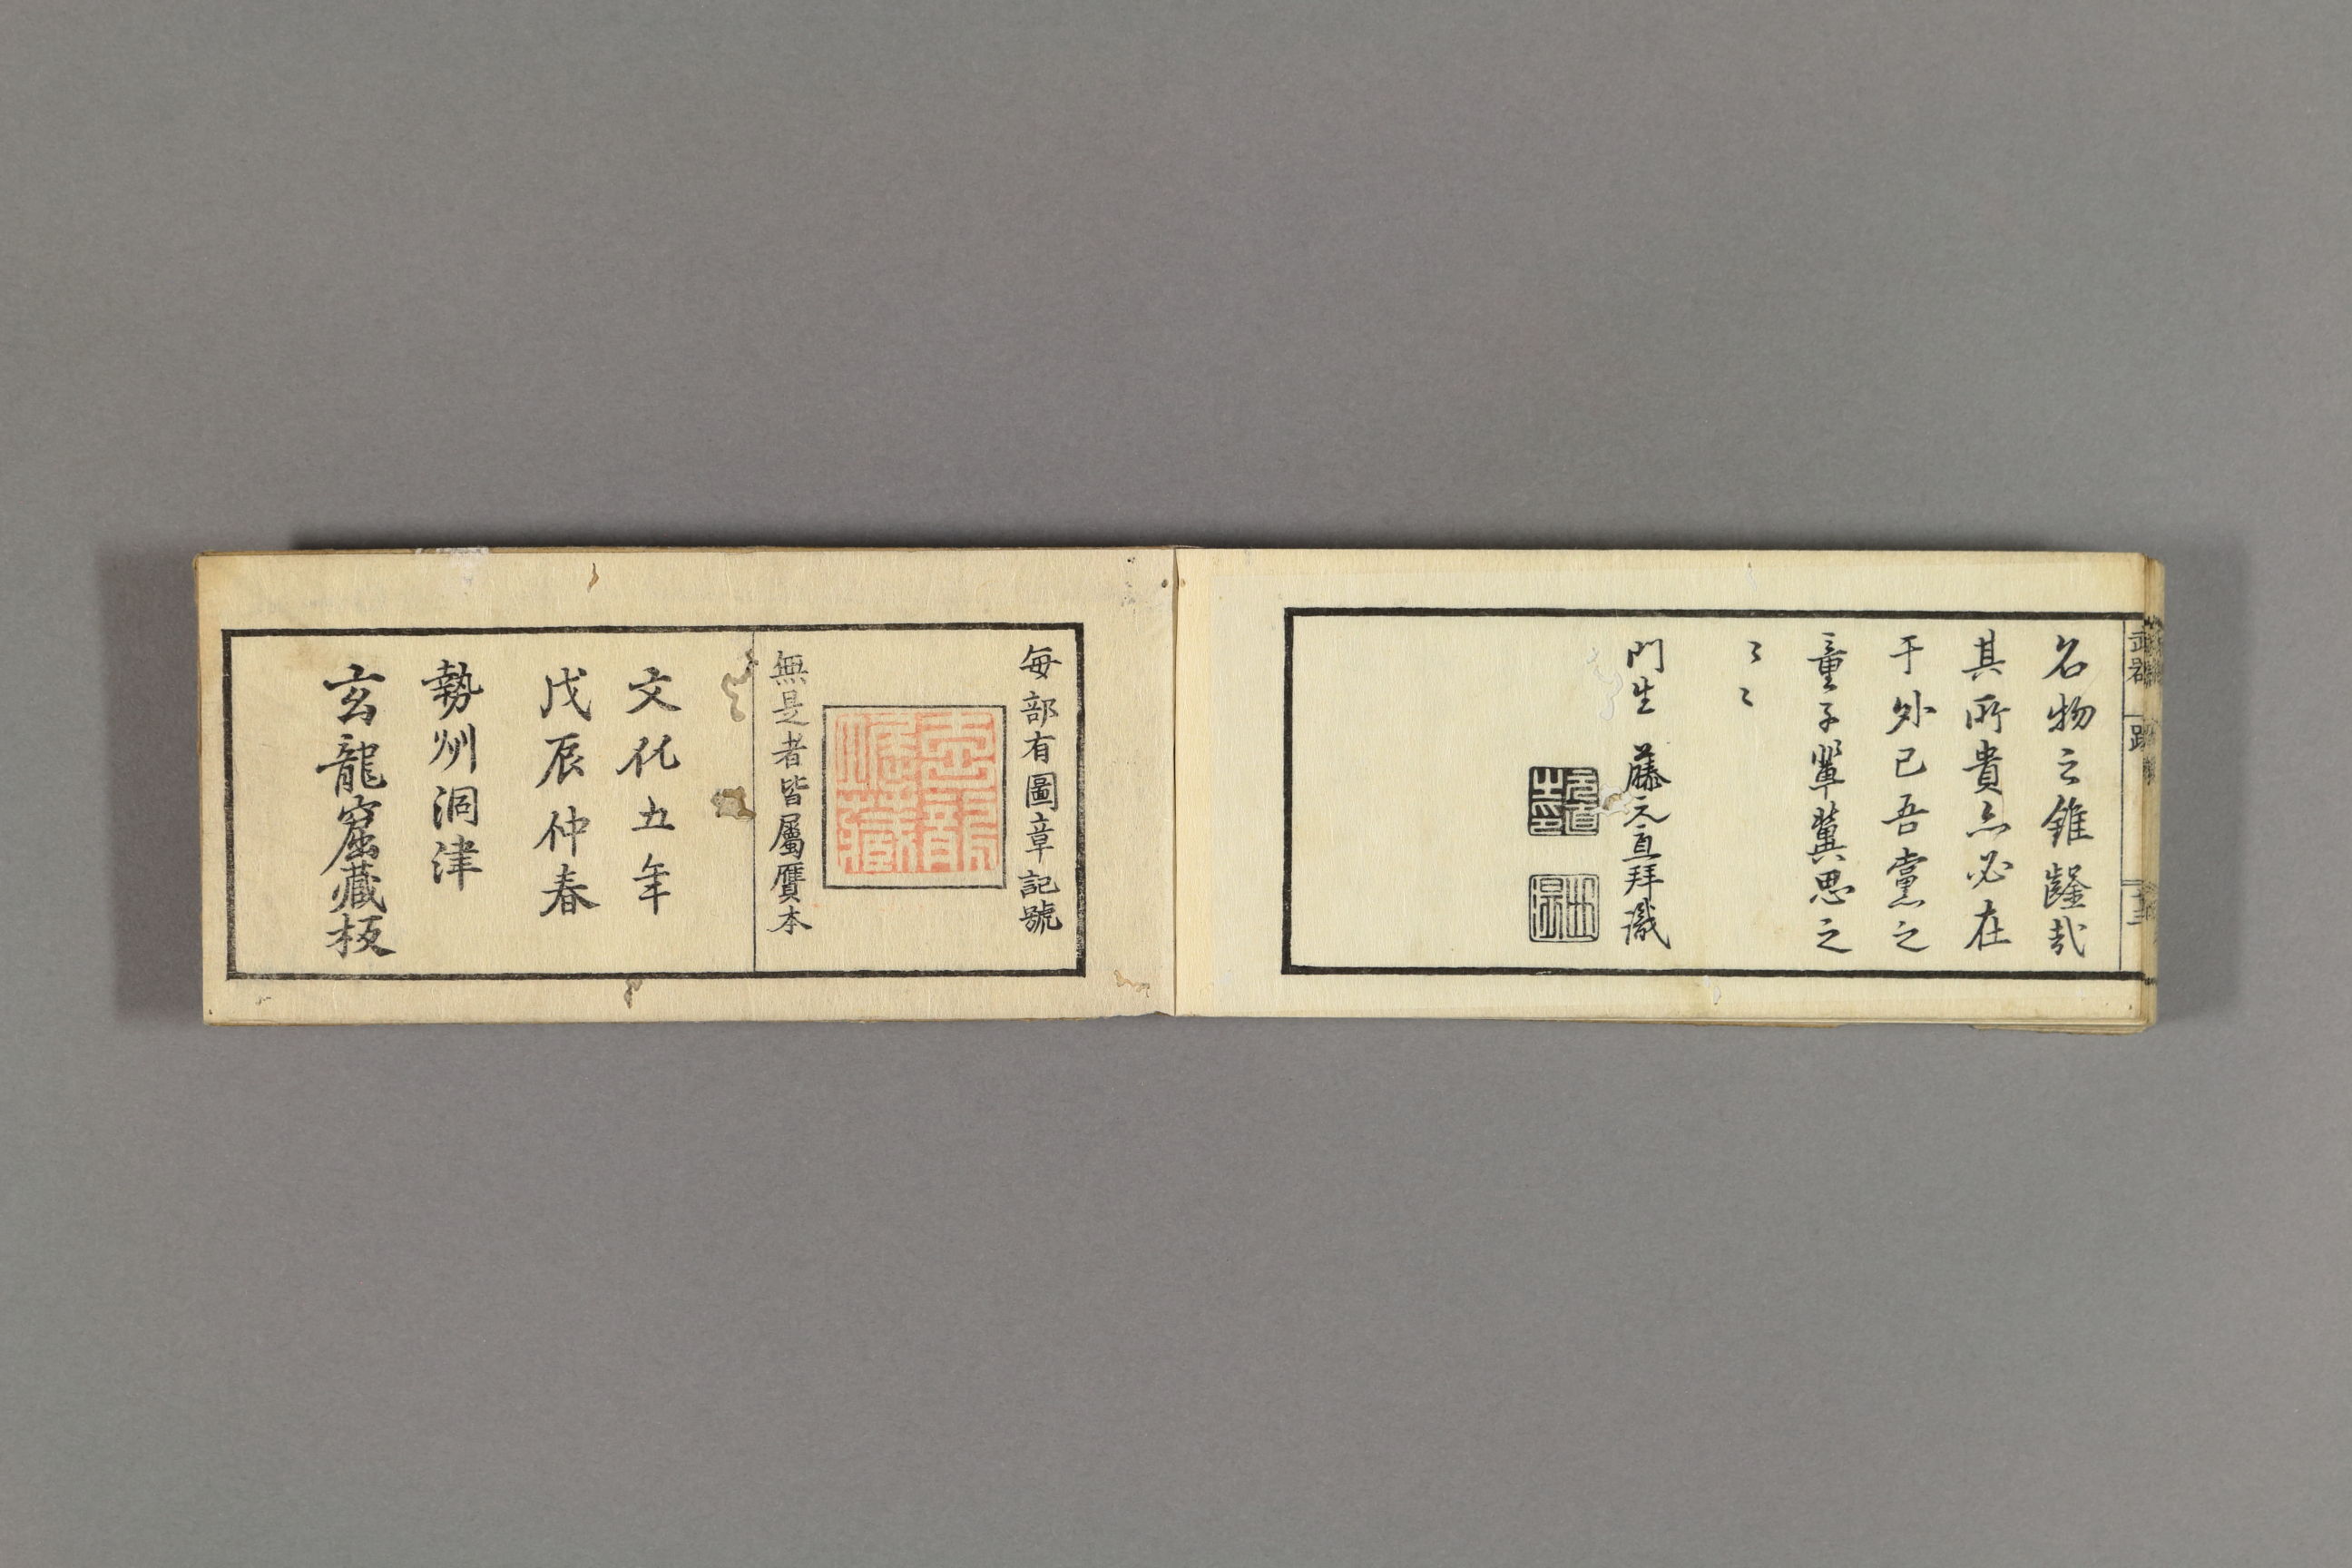 名物之錐鑿哉
其所貴亦必在
于外已吾黨之
童子輩冀思之
〻〻
門生 藤元直拜識
元直之印
每部有圖章記號
無是者皆屬贋本
文化五年
戊辰仲春
勢州洞津
玄龍窟藏板